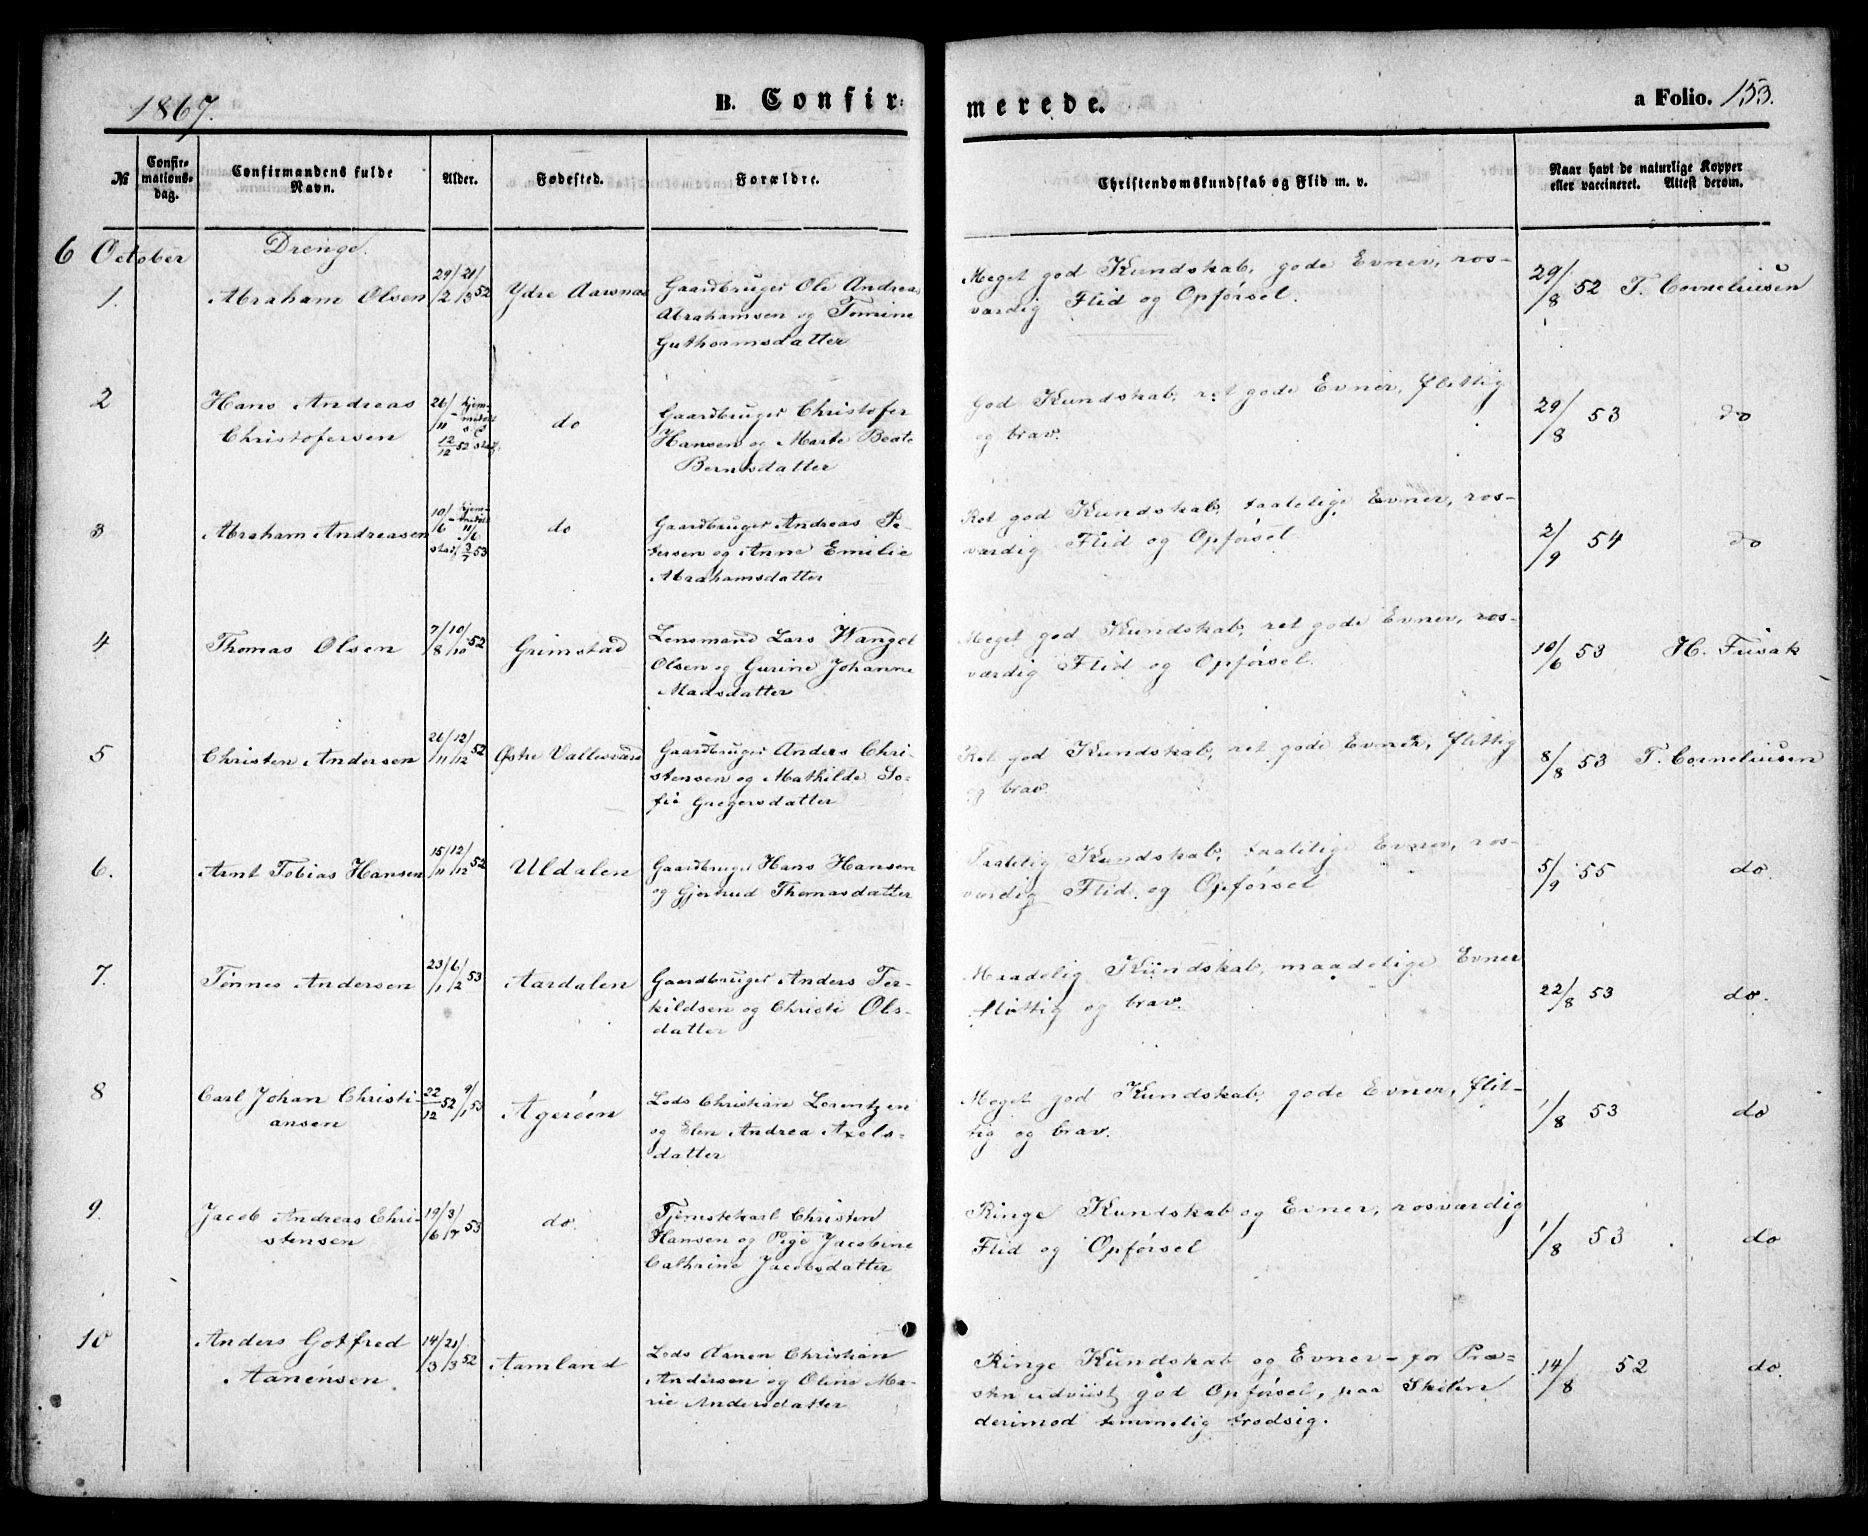 1867.
B. Confir-
merede.
a Folio. 153.
№
Confir-
mations-
dag.
Confirmandens fulde
Navn.
Alder.
Fødested.
Forældre.
Christendomskundskab og Flid m. v.
Naar havt de naturlige Kopper
eller vaccineret. Attest derom.
6 October
Drenge.
1.
Abraham Olsen
29/2 21/3 52
Ydre Aarsnæs
Gaardbruger Ole Andreas
Abrahamsen og Tomine
Guthormsdatter
Meget god Kundskab, gode Evner, ros-
værdig Flid og Opførsel.
29/8 52 T. Corneliusen
2
Hans Andreas
Christofersen
26/11 hjem-
12/12 52
do
Gaardbruger Christofer
Hansen og Marte Beate
Berntsdatter
God Kundskab, ret gode Evner, flittig
og brav.
29/8 53 do
3
Abraham Andreasen
10/6 hjem-
11/6
3/7 53
do
Gaardbruger Andreas Pe-
tersen og Anne Emilie
Abrahamsdatter
Ret god Kundskab, taalelige Evner, ros-
værdig Flid og Opførsel
2/9 54 do
4
Thomas Olsen
7/8 10/10 52
Grimstad
Lensmand Lars Wangel
Olsen og Gurine Johanne
Madsdatter
Meget god Kundskab, ret gode Evner, ros-
værdig Flid og Opførsel.
10/6 53 H. Frisak
5
Christen Andersen
26/11 12/12 52
Østre Vallesværd
Gaardbruger Anders Chri-
stensen og Mathilde So-
fie Gregersdatter
Ret god Kundskab, ret gode Evner, flittig
og brav.
8/8 53 T. Corneliusen
6.
Arnt Tobias Hansen
15/11 12/12 52
Uldalen
Gaardbruger Hans Hansen
og Gjertrud Thomasdatter
Taalelig Kundskab, taalelige Evner, ros-
værdig Flid og Opførsel
5/9 55 do.
7.
Tønnes Andersen
23/1 6/2 53
Aardalen
Gaardbruger Anders Ter-
kildsen og Christi Ols-
datter
Maadelig Kundskab, maadelige Evner
flittig og brav.
22/8 53 do.
8
Carl Johan Christi-
ansen
22/12 52 9/1 53
Agerøen
Lods Christian Lorentzen
og Elen Andrea Axels-
datter
Meget god Kundskab, gode Evner, flit-
tig og brav.
1/8 53 do
9.
Jacob Andreas Chri-
stensen
19/6 3/7 53
do.
Tjenestekarl Christen
Hansen og Pige Jacobine
Cathrine Jacobsdatter
Ringe Kundskab og Evner, rosværdig
Flid og Opførsel
1/8 53 do
10
Anders Gotfred
Aanensen
14/3 21/3 52
Aamland
Lods Aanen Christian
Andersen og Oline Ma-
rie Andersdatter
Ringe Kundskab og Evner – for Præ-
sten udviist god Opførsel, paa Skolen
derimod temmelig trodsig.
14/8 52 do.